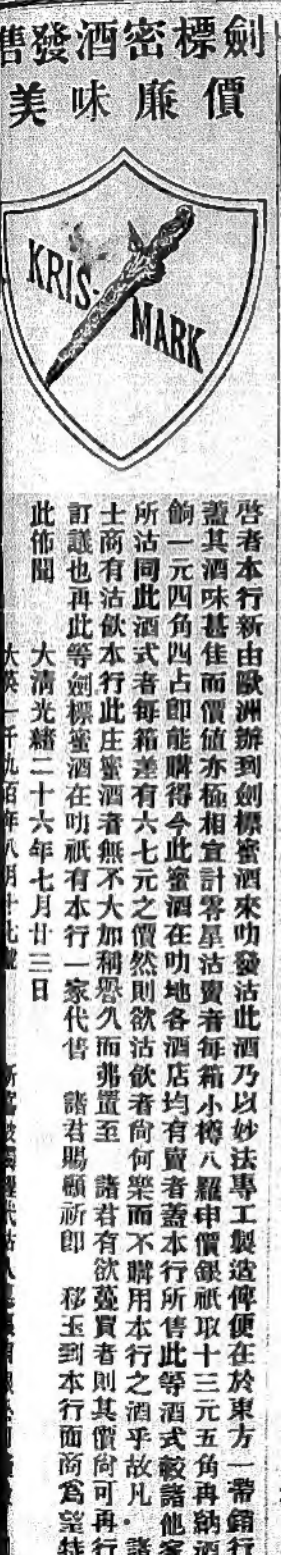 劍標密酒發售
價廉味美
KRIS-MARK
啓者本行新由歐洲辦到劍標蜜酒來叻發沽此酒乃以妙法專工製造俾便在於東方一帶銷行
蓋其酒味甚佳而價值亦極相宜計零星沽賣者每箱小樽八羅申價銀祇取十三元五角再納酒
餉一元四角四占即能購得今此蜜酒在叻地各酒店均有賣者蓋本行所售此等酒式較諸他家
所沽同此酒式者每箱差有六七元之價然則欲沽飲者尙何樂而不購用本行之酒乎故凡 諸
士商有沽飲本行此庄蜜酒者無不大加稱譽久而弗置至 諸君有欲躉買者則其價尙可再行
訂議也再此等劍標蜜酒在叻祇有本行一家代售 諸君賜顧祈卽 移玉到本行面商爲望特
此佈聞 大淸光緖二十六年七月廿三日
大英一千九百年八月十七號